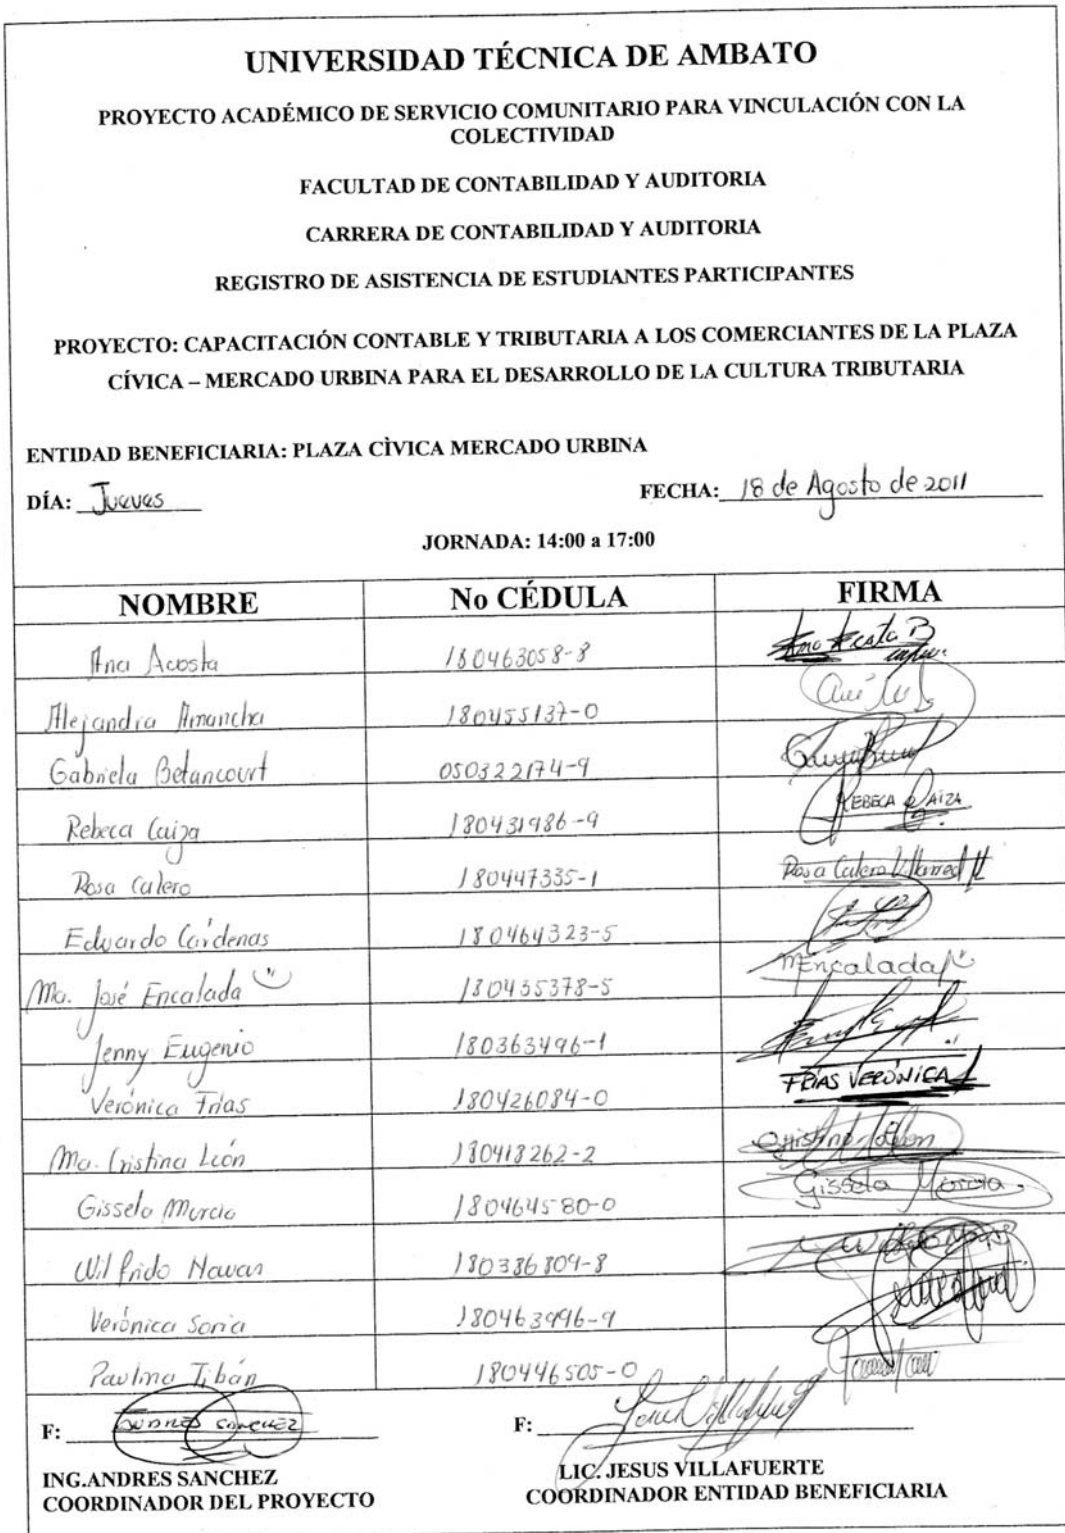 UNIVERSIDAD TÉCNICA DE AMBATO
PROYECTO ACADÉMICO DE SERVICIO COMUNITARIO PARA VINCULACIÓN CON LA
COLECTIVIDAD
FACULTAD DE CONTABILIDAD Y AUDITORIA
CARRERA DE CONTABILIDAD Y AUDITORIA
REGISTRO DE ASISTENCIA DE ESTUDIANTES PARTICIPANTES
PROYECTO: CAPACITACIÓN CONTABLE Y TRIBUTARIA A LOS COMERCIANTES DE LA PLAZA
CÍVICA – MERCADO URBINA PARA EL DESARROLLO DE LA CULTURA TRIBUTARIA
ENTIDAD BENEFICIARIA: PLAZA CÌVICA MERCADO URBINA
DÍA: Jueves FECHA: 18 de Agosto de 2011
JORNADA: 14:00 a 17:00
NOMBRE No CÉDULA FIRMA
Ana Acosta 180463058-8
Alejandra Amancha 180455137-0
Gabriela Betancourt 050322174-9
Rebeca Caiza 180431986-9 REBECA CAIZA
Rosa Calero 180447335-1 Rosa Calero
Eduardo Cárdenas 180464323-5
Ma. José Encalada 180435378-5 MEncalada
Jenny Eugenio 180363496-1
Verónica Frías 180426084-0 FRÍAS VERÓNICA
Ma. Cristina León 180418262-2
Gissela Murcia 180464580-0 Gissela Murcia
Wilfrido Navas 180386809-8
Verónica Soria 180463996-9
Paulina Tibán 180446505-0
F: ANDRÉS SANCHEZ F:
ING.ANDRES SANCHEZ LIC. JESUS VILLAFUERTE
COORDINADOR DEL PROYECTO COORDINADOR ENTIDAD BENEFICIARIA